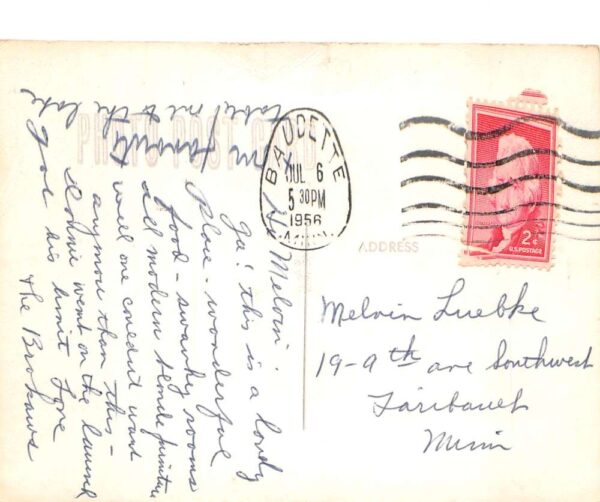 PHOTO POST CARD
BAUDETTE
JUL 6
5 30 PM
1956
MINN.
2¢
U.S. POSTAGE
ADDRESS
Hi Melvin:
Gee! this is a lovely
place - wonderful
food - swanky rooms
all modern blonde furniture
well one couldn't want
anymore than this -
went on the launch
to the lake
got his limit Love
The Brokaws
Melvin Luebke
19-9th ave Southwest
Faribault
Minn